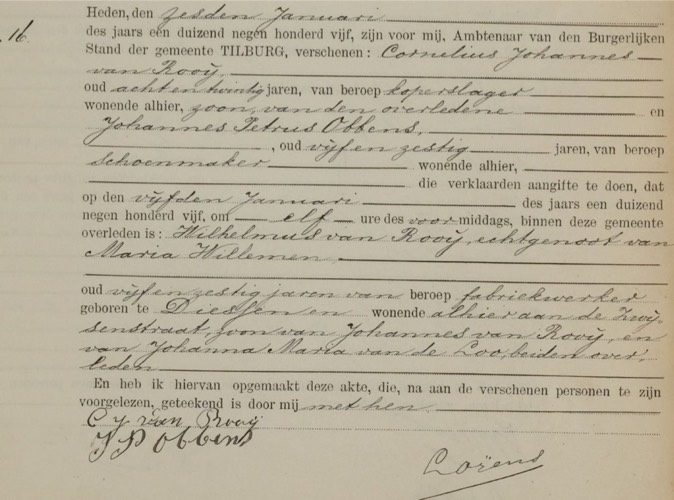 Heden, den zesden Januari
16. des jaars een duizend negen honderd vijf, zijn voor mij, Ambtenaar van den Burgerlijken
Stand der gemeente TILBURG, verschenen: Cornelius Johannes
van Rooij,
oud achtentwintig jaren, van beroep koperslager
wonende alhier, zoon van den overledene en
Johannes Petrus Obbens,
, oud vijfenzestig jaren, van beroep
schoenmaker wonende alhier,
die verklaarden aangifte te doen, dat
op den vijfden Januari des jaars een duizend
negen honderd vijf, om elf ure des voormiddags, binnen deze gemeente
overleden is: Wilhelmus van Rooij, echtgenoot van
Maria Willemen,
oud vijfenzestig jaren van beroep fabriekwerker
geboren te Diessen en wonende alhier aan de Zwij-
senstraat, zoon van Johannes van Rooij, en
van Johanna Maria van de Loo, beiden over-
leden
En heb ik hiervan opgemaakt deze akte, die, na aan de verschenen personen te zijn
voorgelezen, geteekend is door mij met hen.
C J van Rooij
J P Obbens